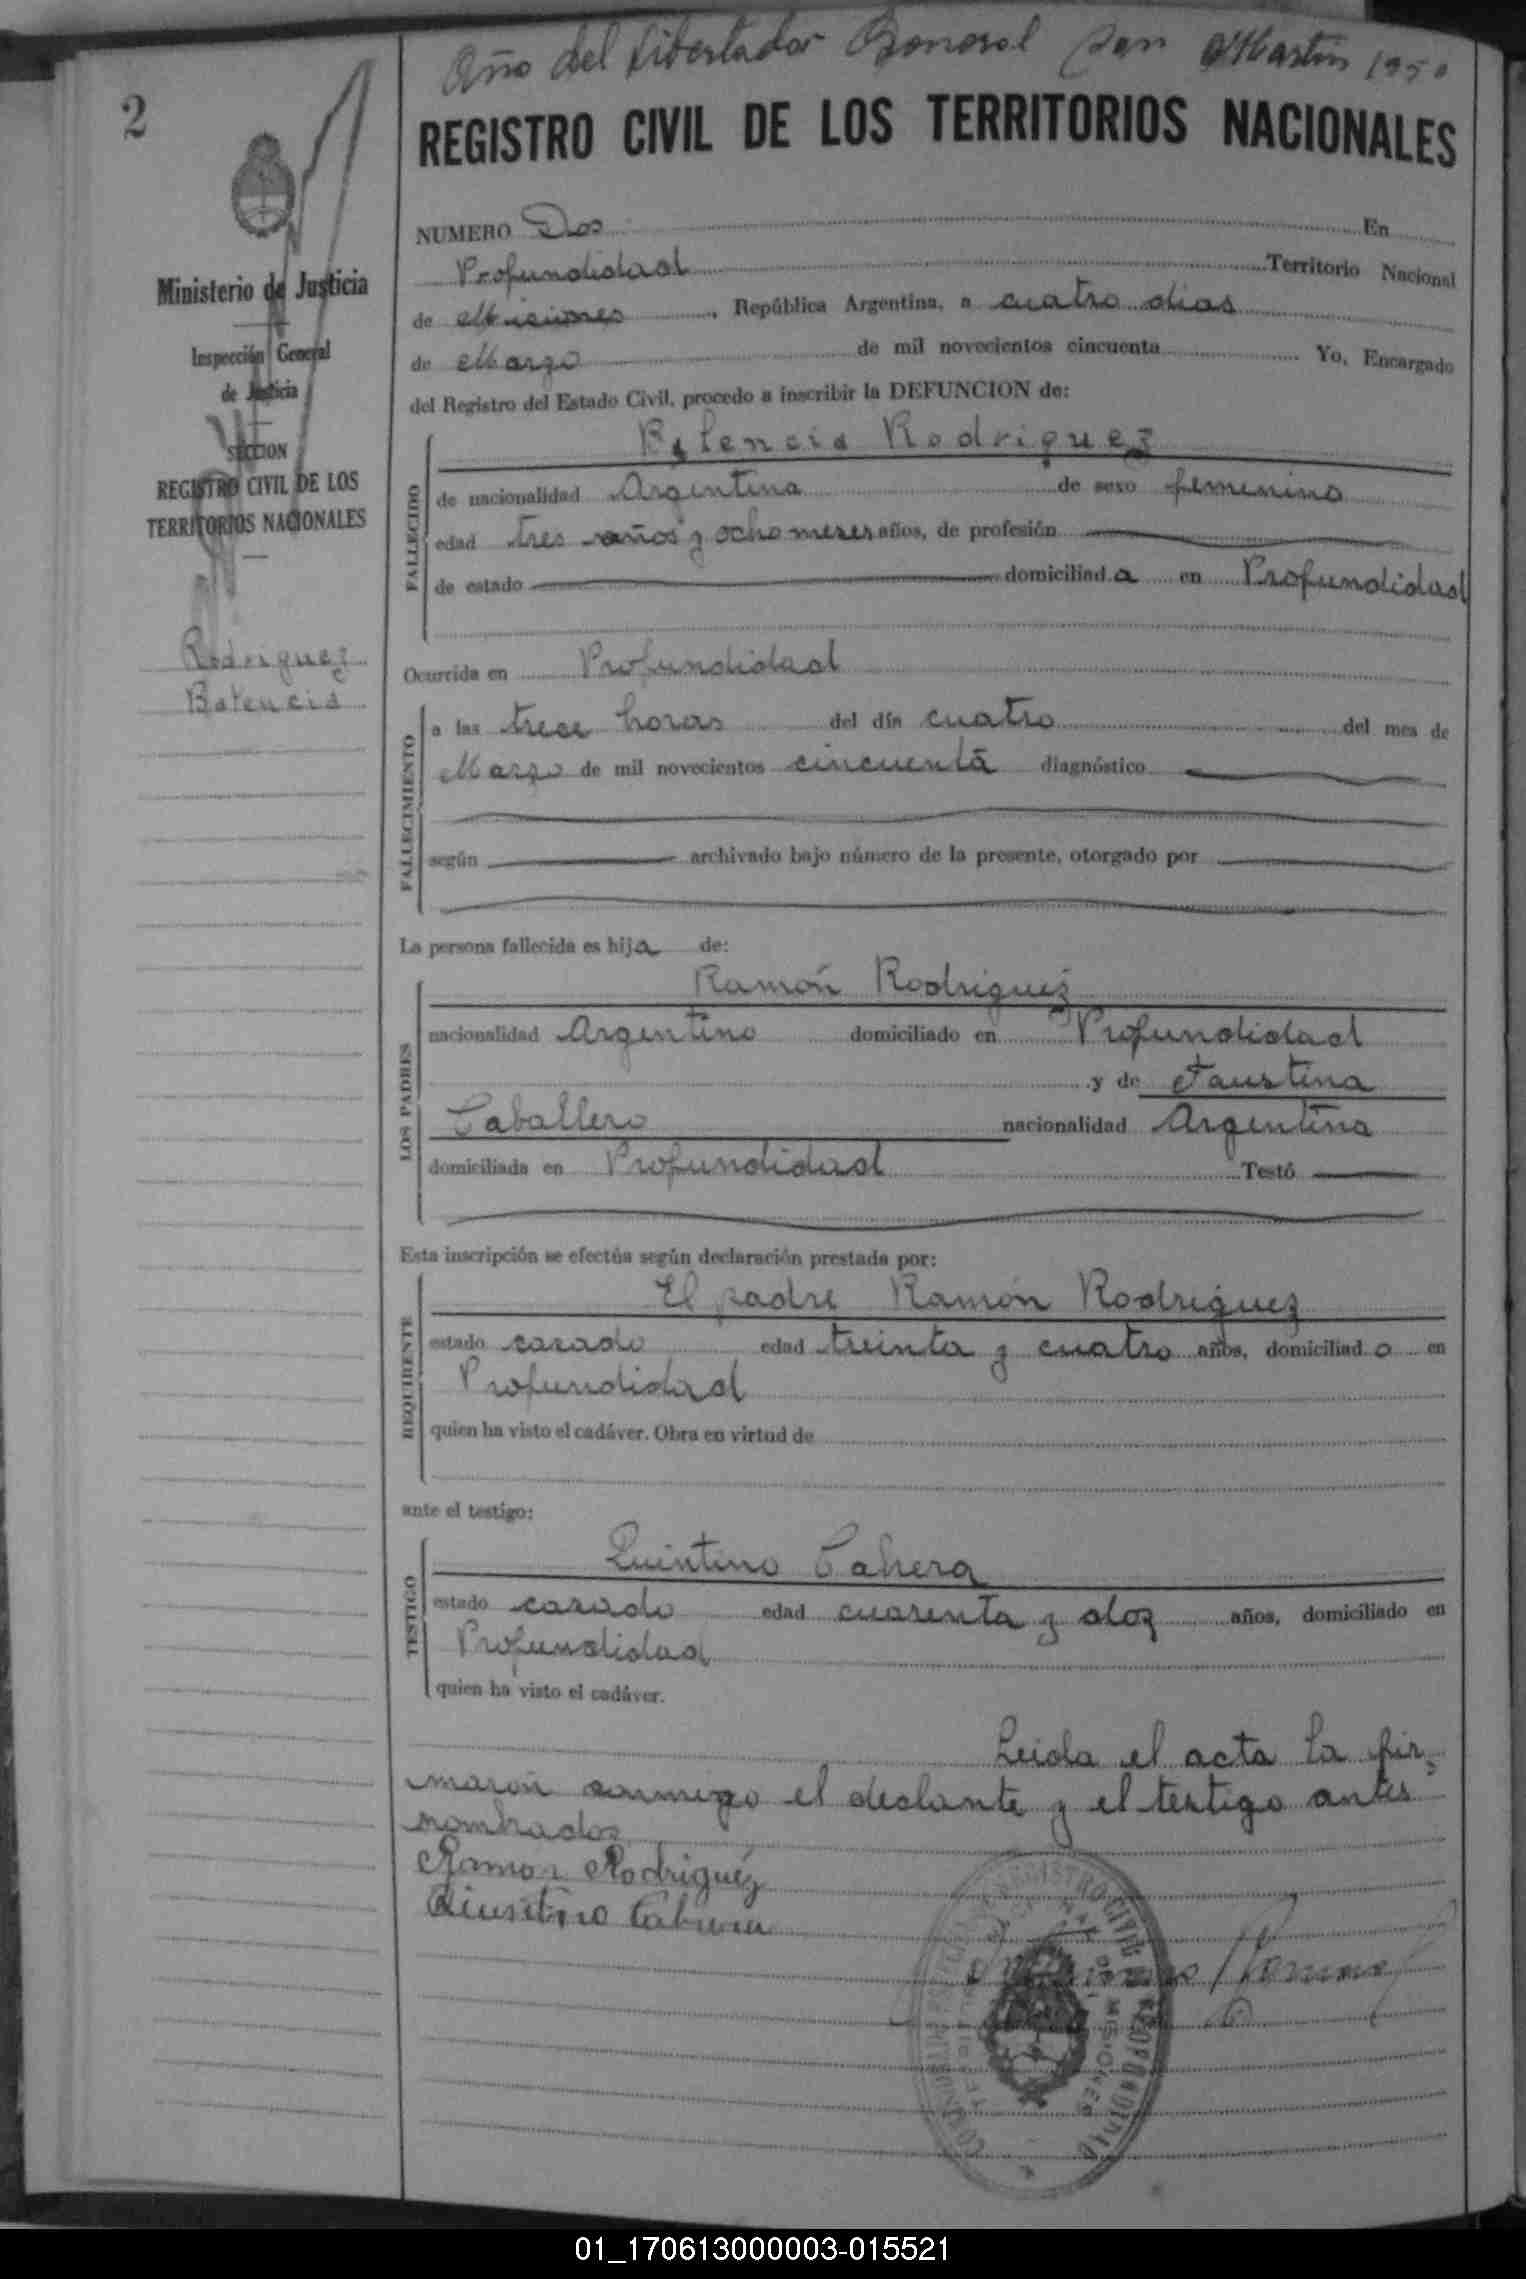 Año del Libertador General San Martin 1950
2
REGISTRO CIVIL DE LOS TERRITORIOS NACIONALES
Ministerio de Justicia
Inspección General
de Justicia
SECCION
REGISTRO CIVIL DE LOS
TERRITORIOS NACIONALES
Rodriguez
Balencia
NUMERO Dos En
Profundidad Territorio Nacional
de Misiones, República Argentina, a cuatro dias
de Marzo de mil novecientos cincuenta Yo, Encargado
del Registro del Estado Civil, procedo a inscribir la DEFUNCION de:
Balencia Rodriguez
FALLECIDO
de nacionalidad Argentina de sexo femenino
edad tres años y ocho meses años, de profesión
de estado domiciliada en Profundidad
Ocurrida en Profundidad
FALLECIMIENTO
a las trece horas del día cuatro del mes de
Marzo de mil novecientos cincuenta diagnóstico
según archivado bajo número de la presente, otorgado por
La persona fallecida es hija de:
LOS PADRES
Ramón Rodriguez
nacionalidad Argentino domiciliado en Profundidad
y de Faustina
Caballero nacionalidad Argentina
domiciliada en Profundidad Testó
Esta inscripción se efectúa según declaración prestada por:
REQUIRENTE
El padre Ramón Rodriguez
estado casado edad treinta y cuatro años, domiciliado en
Profundidad
quien ha visto el cadáver. Obra en virtud de
ante el testigo:
TESTIGO
Quintino Cabrera
estado casado edad cuarenta y dos años, domiciliado en
Profundidad
quien ha visto el cadáver.
Leida el acta la fir-
maron conmigo el declante y el testigo antes
nombrados
Ramon Rodriguez
Quintino Cabrera
REGISTRO CIVIL
MISIONES
01_170613000003-015521